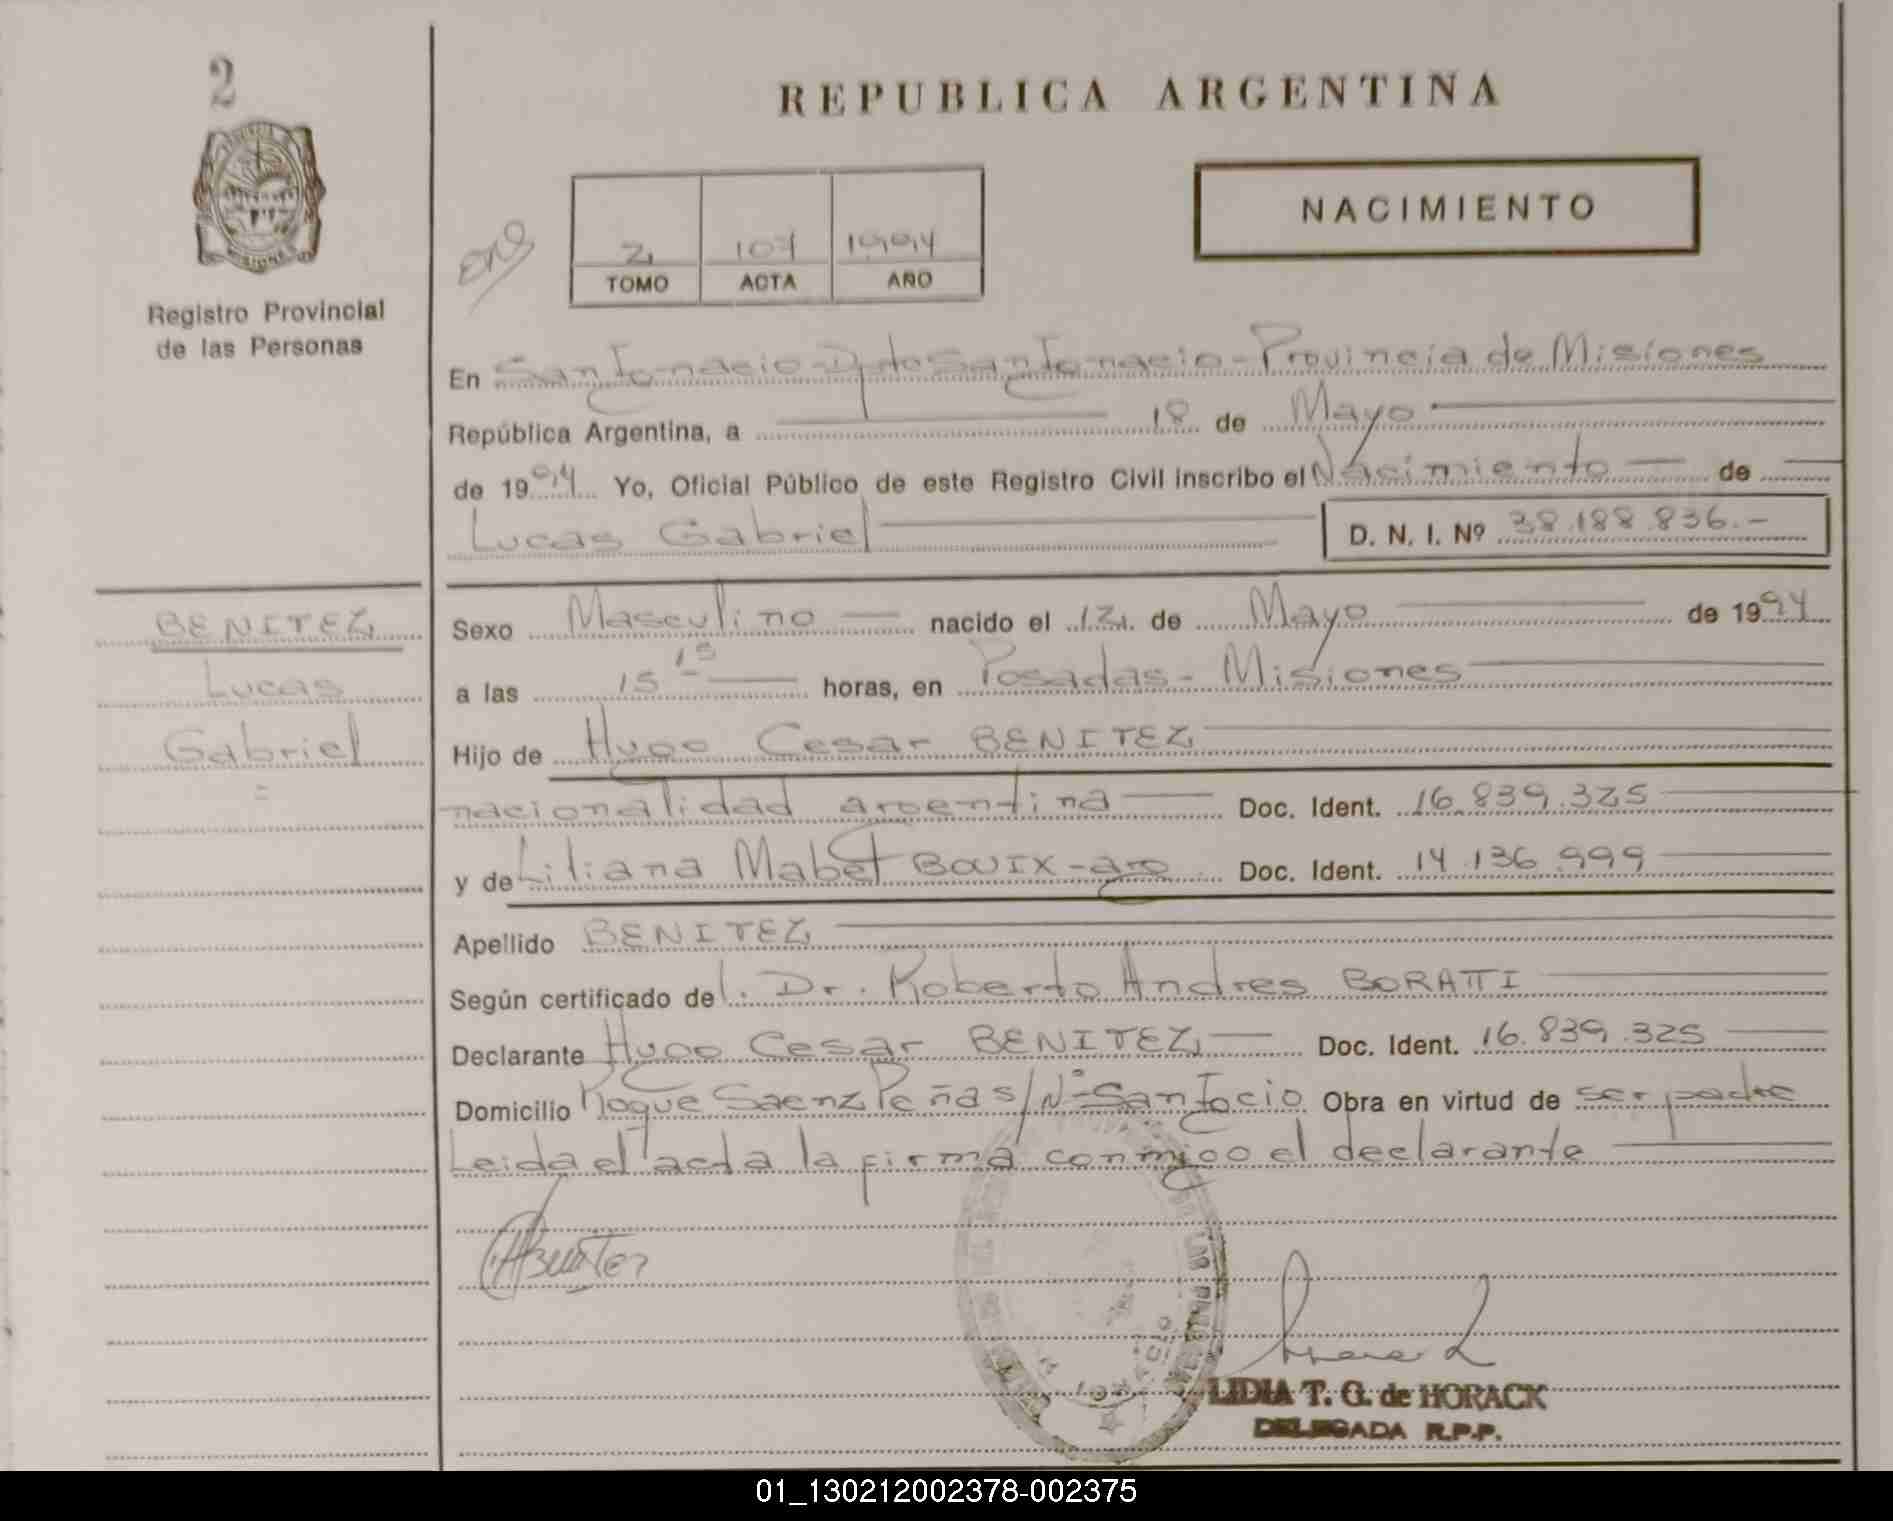 2
REPUBLICA ARGENTINA
NACIMIENTO
2 107 1994
TOMO ACTA AÑO
Registro Provincial
de las Personas
En San Ignacio - Dpto San Ignacio - Provincia de Misiones
República Argentina, a 18 de Mayo
de 1994 Yo, Oficial Público de este Registro Civil inscribo el Nacimiento de
Lucas Gabriel D. N. I. Nº 38.188.836.-
BENITEZ
Lucas
Gabriel
Sexo Masculino nacido el 12 de Mayo de 1994
a las 15 15 horas, en Posadas - Misiones
Hijo de Hugo Cesar BENITEZ
nacionalidad argentina Doc. Ident. 16.839.325
y de Liliana Mabel BOUIX - arg Doc. Ident. 14.136.999
Apellido BENITEZ
Según certificado del. Dr. Roberto Andres BORATTI
Declarante Hugo Cesar BENITEZ Doc. Ident. 16.839.325
Domicilio Roque Saenz Peña s/Nº San Igcio Obra en virtud de ser padre
Leida el acta la firma conmigo el declarante
LIDIA T. G. de HORACK
DELEGADA R.P.P.
01_130212002378-002375